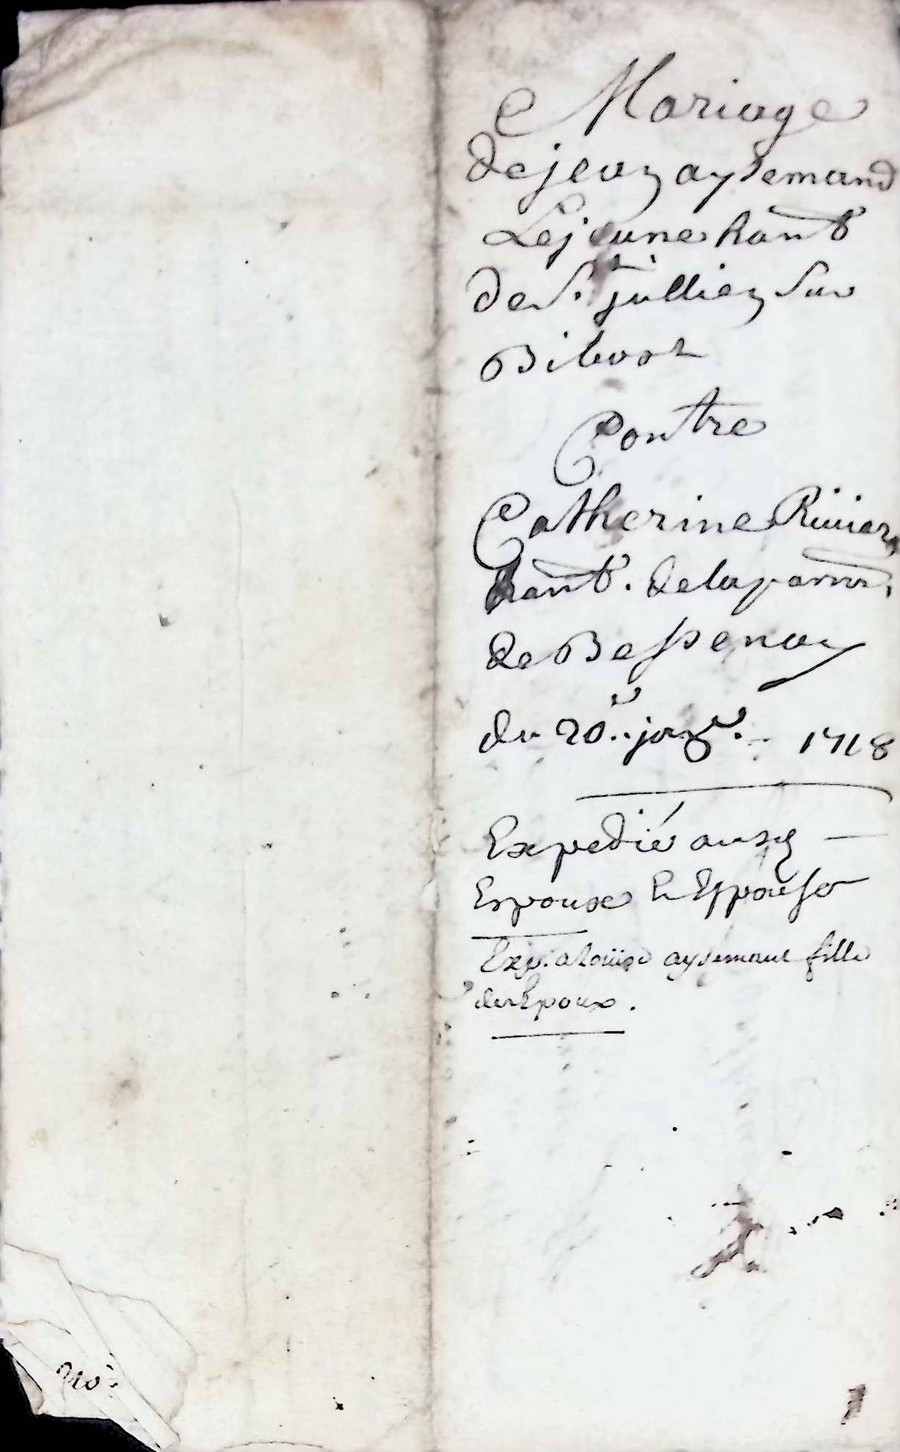 Mariage
de jean aysemand
Lejeune hant
de St jullien Sur
Bibost
Contre
Catherine Riuier
hant. de la parr.
de Bessenay
du 20.e janr. 1718
Expedié ausd
Espoux & Espouse
Exp. a Loüise aysemant fille
des Epoux.